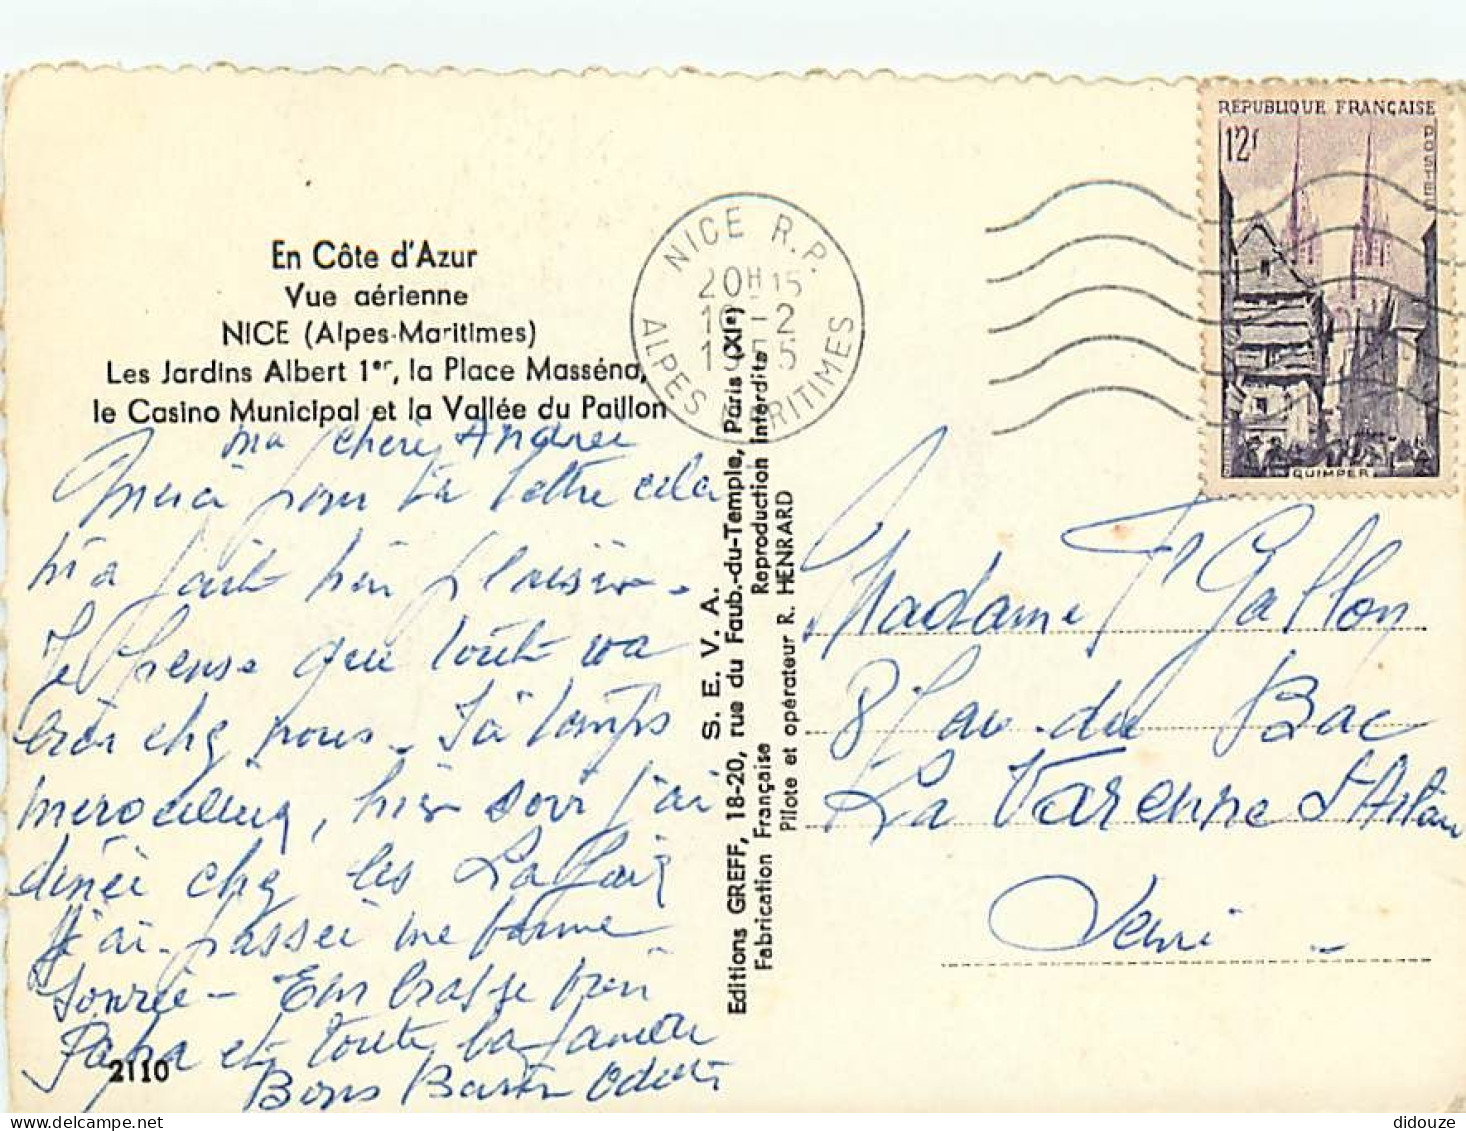 En Côte d'Azur
Vue aérienne
NICE (Alpes-Maritimes)
Les Jardins Albert 1er, la Place Masséna,
le Casino Municipal et la Vallée du Paillon
ma cheri Andrei
Merci pour ta lettre cela
m'a fait bien plaisir -
Je pense que toute va
bien chez vous - J'ai temps
merveilleux, hier soir j'ai
dinéi chez les
J'ai passéi une bonne
soirée - Embrasse bien
Papa et toute la famille
Bons Baiser Odette
2110
Editions GREFF, 18-20, rue du Faub.-du-Temple, Paris (XIe)
S. E. V. A.
Fabrication Française
Reproduction interdite
Pilote et opérateur R. HENRARD
NICE R.P.
20H15
1 -2
1 5
ALPES MARITIMES
REPUBLIQUE FRANÇAISE
12f
POSTES
QUIMPER
Madame Gallon
8 av. du Bac
La Varenne St Hilaire
Seine -
didouze